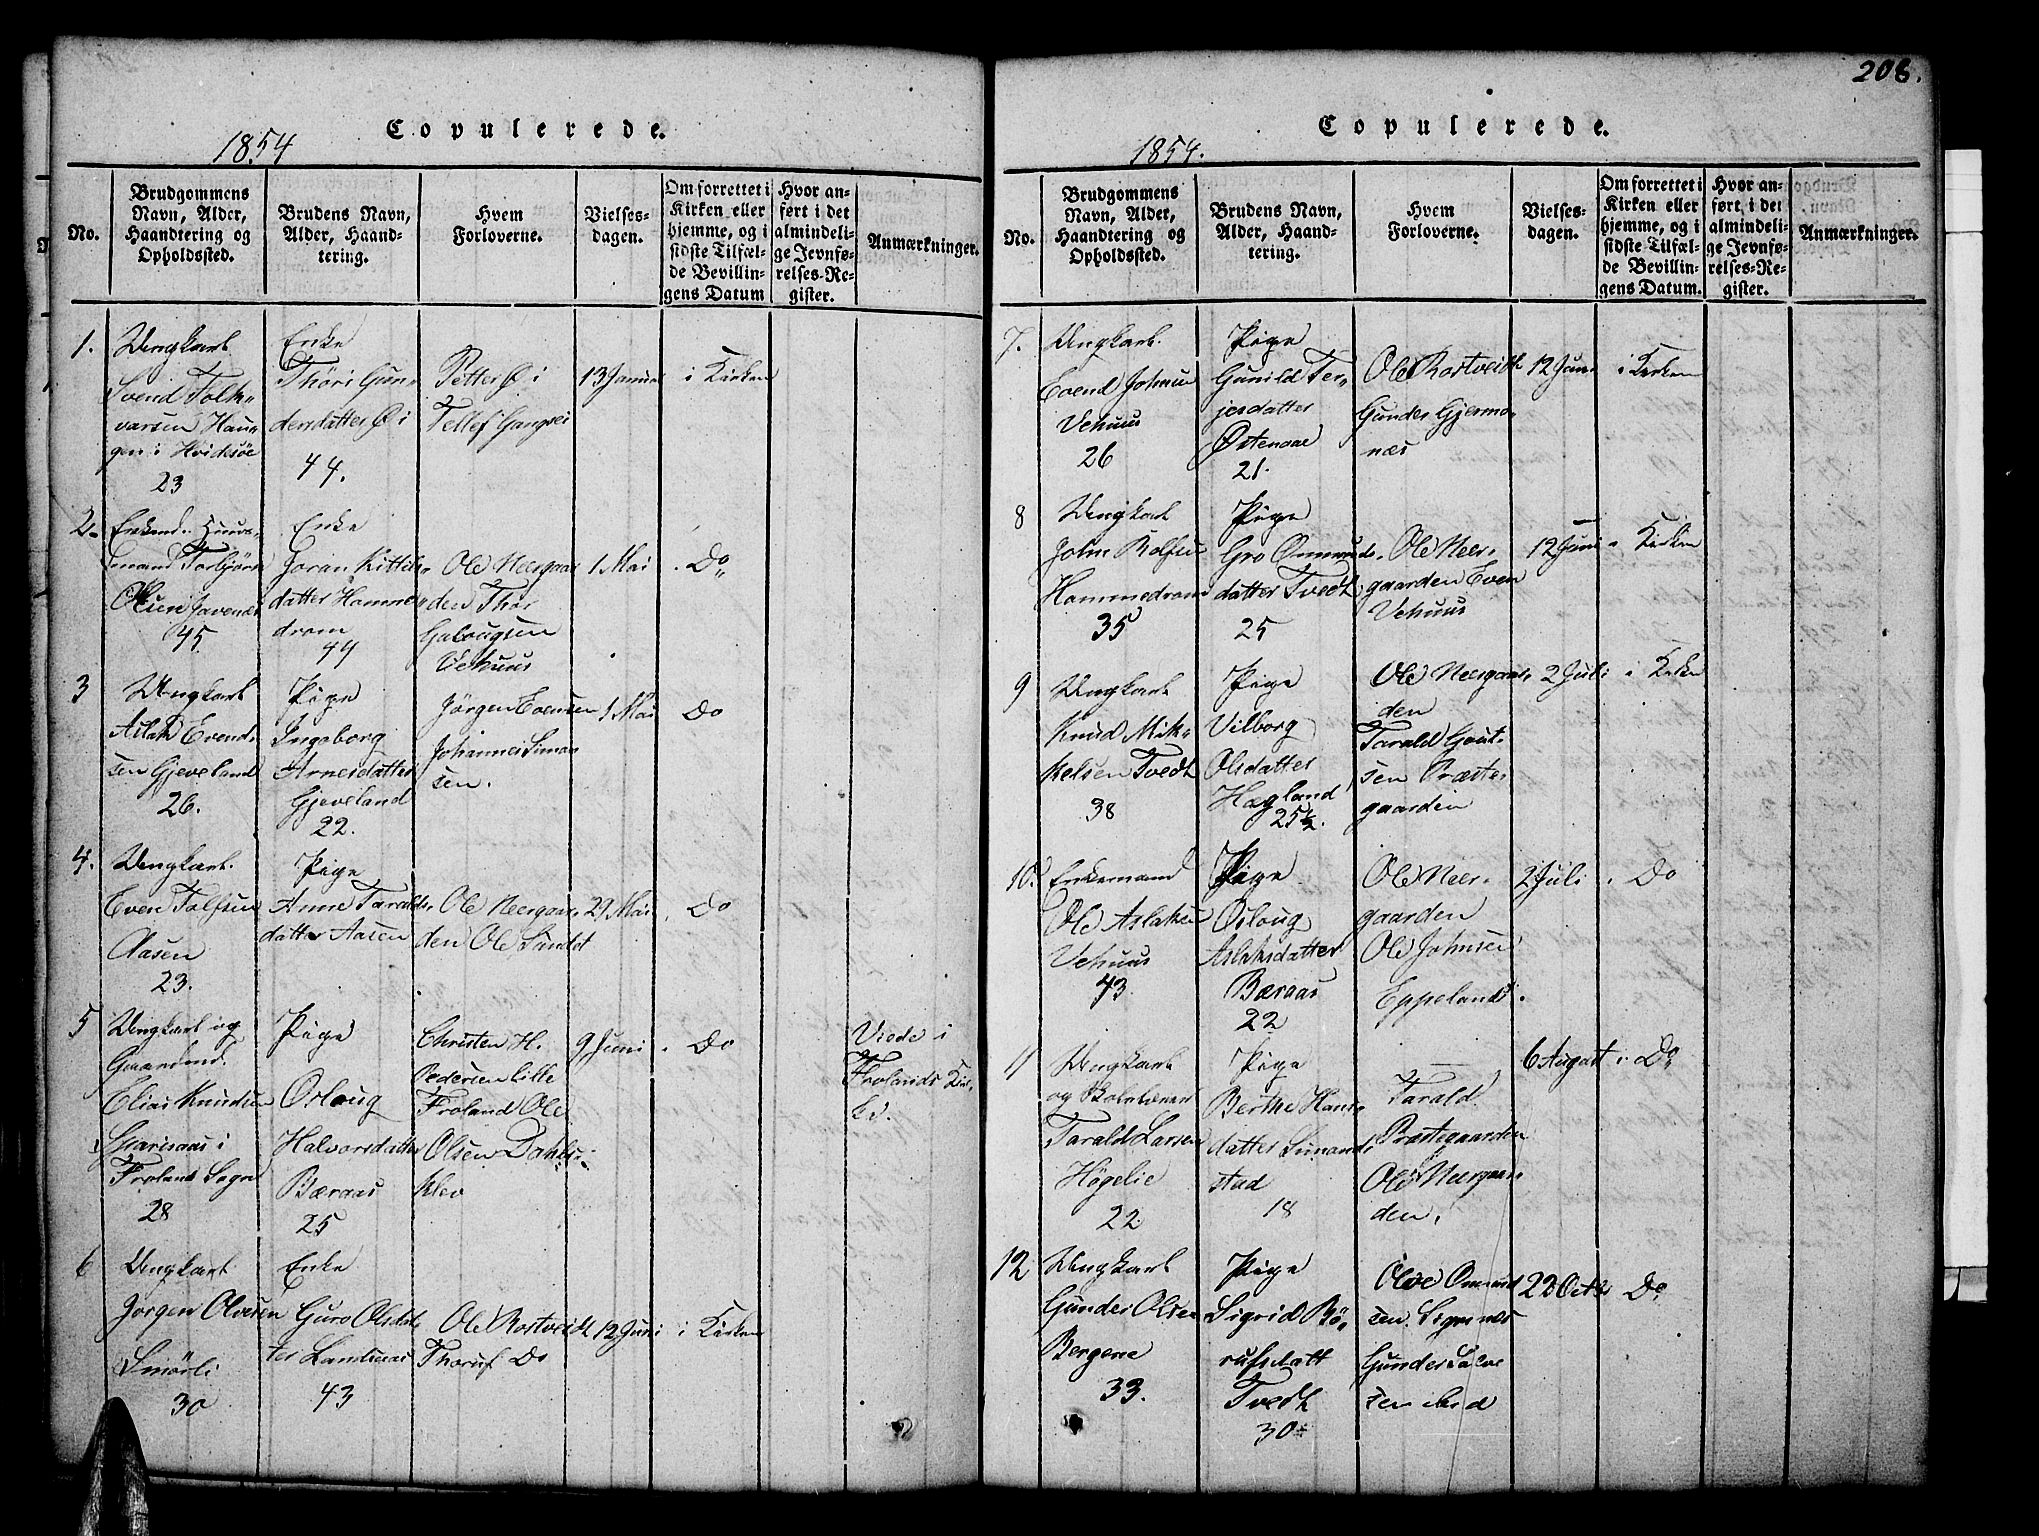 208.
Copulerede.
1854
No.
Brudgommens
Navn, Alder,
Haandtering og
Opholdssted.
Brudens Navn,
Alder, Haand-
tering.
Hvem
Forloverne.
Vielses-
dagen.
Om forrettet i
Kirken eller
hjemme, og i
sidste Tilfæl-
de Bevillin-
gens Datum
Hvor an-
ført i det
almindeli-
ge Jevnfø-
relses-Re-
gister.
Anmærkninger.
1.
Ungkarl
Svend Folk-
varsen Hau-
gen i Hvidesøe
23
Enke
Thöri Gun-
dersdatter Ø i
44.
Petter Ø i
Tellef
13 Januar
i Kirken
2.
Enkemd. Huus-
mand Torbjörn
Olsen
45.
Enke
Joran Kittils-
datter Homme-
drom
44
Ole Neergaar-
den Thor
Vehuus
1 Mai
Do
3
Ungkarl
Aslak Evend-
sen Gjeveland
26.
Pige
Ingeborg
Arnesdatter
Gjeveland
22.
Jörgen Evensen
Johannes Simon
sen.
1 Mai
Do
4.
Ungkarl.
Even Tolfsen
Aasen
23.
Pige
Anne Taralds-
datter Aasen
Ole Neergaar-
den Ole Sundet
29 Mai
Do
5
Ungkarl og
Gaardmd.
Elias Knudsen
i
Froland Sogn
28
Pige
Osloug
Halvorsdatter
Bæraas
25
Christen H.
Pedersen Lille
Froland Ole
Olsen Dahls-
klev
9 Juni
Do
Viede i
Frolands Kir-
ke.
6
Ungkarl
Jorgen Olvesen
Smörli
30
Enke
Guro Olsdat
ter Landsaas
43
Ole Rostveidt
Thoruf Do
12 Juni
i Kirken
Copulerede.
1854.
No.
Brudgommens
Navn, Alder,
Haandtering og
Opholdssted.
Brudens Navn,
Alder, Haand-
tering.
Hvem
Forloverne.
Vielses-
dagen.
Om forrettet i
Kirken eller
hjemme, og i
sidste Tilfæl-
de Bevillin-
gens Datum.
Hvor an-
ført, i det
almindeli-
ge Jevnfø-
relses-Re-
gister.
Anmærkninger.
7.
Ungkarl.
Evend Johnsen
Vehuus
26
Pige
Gunild Ter-
jesdatter
Østenaae
21.
Ole Rostveidt
Gunder Gjermo-
næs
12 Juni
i Kirken
8
Ungkarl
John Rolfsen
Hommedrom
35
Pige
Gro Omunds-
datter Tvedt
25
Ole Neer-
gaarden Even
Vehuus
12 Juni
i Kirken
9
Ungkarl
Knud Mik-
kelsen Tvedt
38
Pige
Vilborg
Olsdatter
Hægland
25½.
Ole Neergaar-
den
Tarald Gout-
sen Præste-
gaarden
2 Juli
i Kirken
10.
Enkemand
Ole Aslaksen
Vehuus
43.
Pige
Osloug
Aslaksdatter
Bæraas
22
Ole Neer-
gaarden
Ole Johnsen
Eppeland.
2 Juli
i Do
11
Ungkarl
og Skolelærer
Tarald Larsen
Högelie
22
Pige
Berthe Hans-
datter Simonds
stad
18
Tarald
Præstegaarden
Ole Neergaar-
den.
6 August
i Do
12
Ungkarl
Gunder Olsen
Bergene
33.
Pige
Sigrid Bö-
rufsdatt
Tvedt
30
Olve Omund
sen Sigenes
Gunder Salve
sen ibid
22 Octr
Do